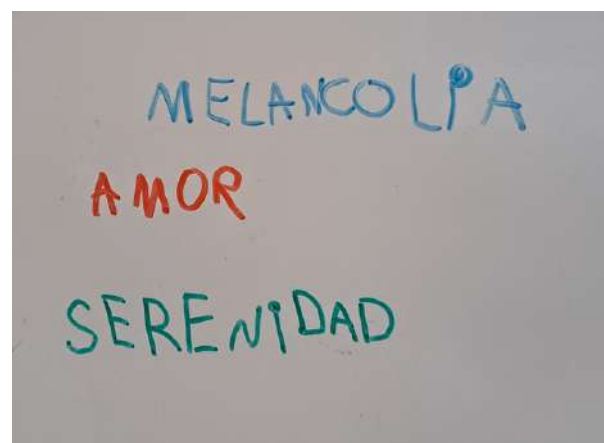 MELANCOLiA
AMOR
SERENiDAD